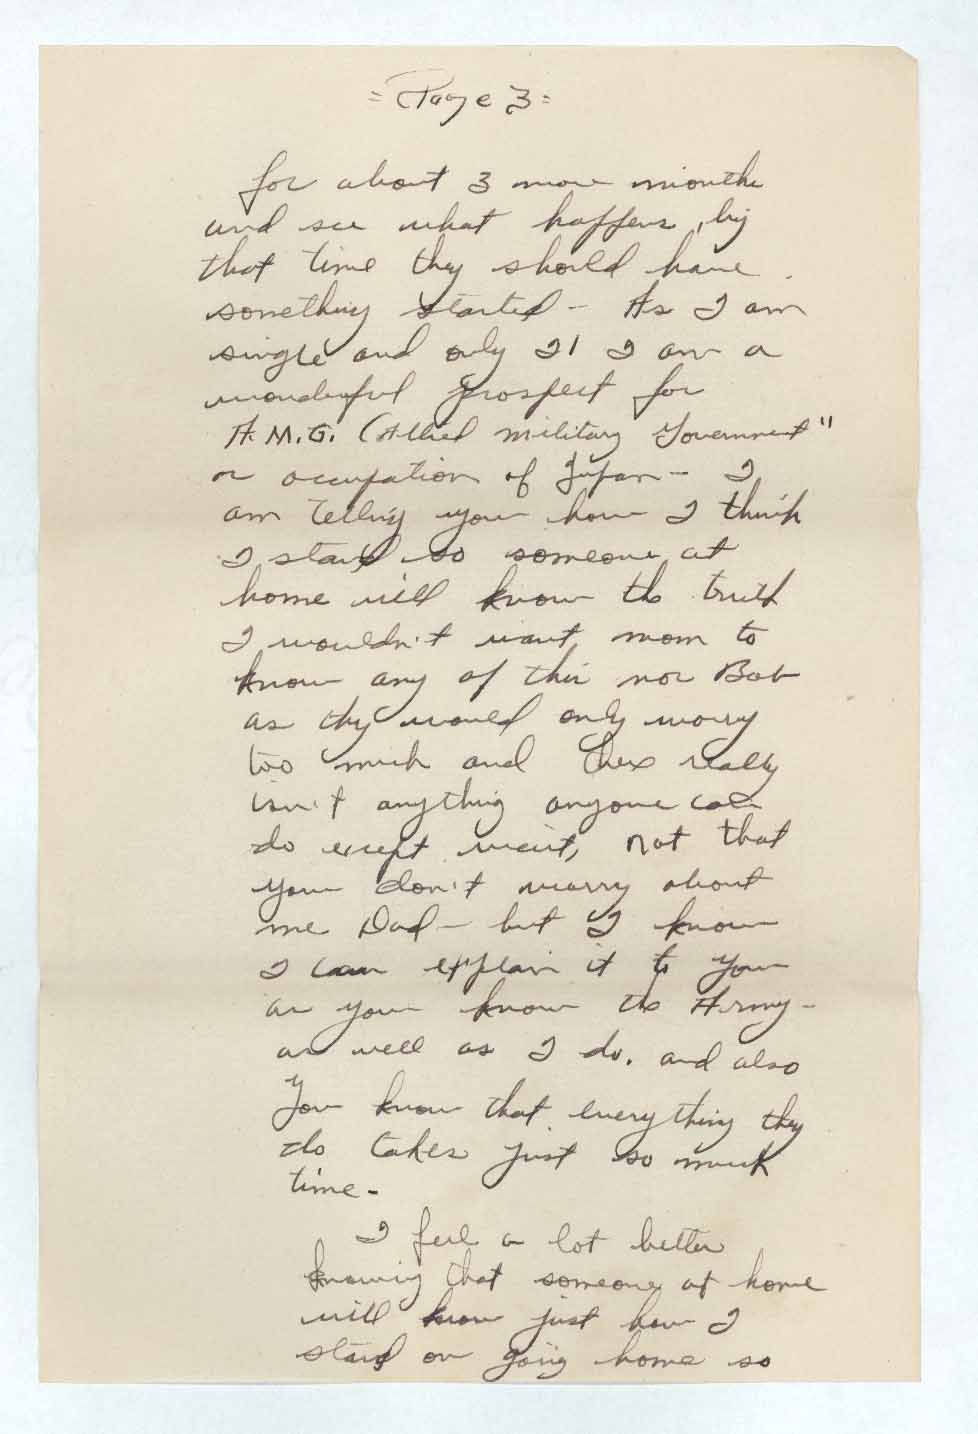 = Page 3 =
for about 3 more months
and see what happens, by
that time they should have
something started - As I am
single and only 21 I am a
wonderful prospect for
A.M.G. (Allied military Government"
or occupation of Japan - I
am telling you how I think
I stand so someone at
home will know the truth
I wouldn't want mom to
know any of this nor Bob
as they would only worry
too much and there really
isn't anything anyone can
do except wait, not that
you don't worry about
me Dad - but I know
I can explain it to you
as you know the Army -
as well as I do. and also
You know that everything they
do takes just so much
time -
I feel a lot better
knowing that someone at home
will know just how I
stand on going home so